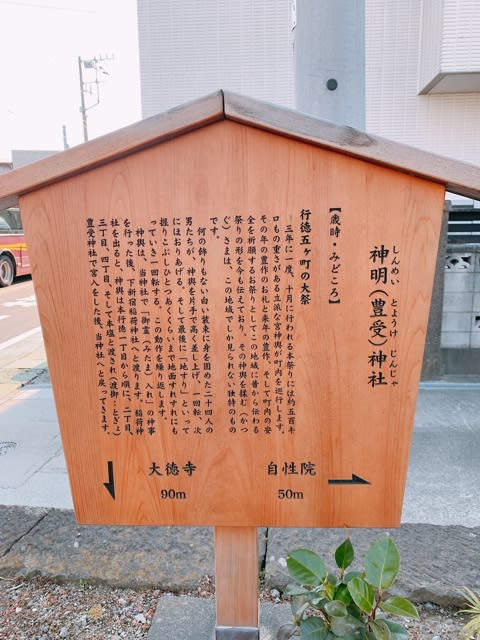 しんめい とようけ じんじゃ
神明(豊受)神社
【歳時・みどころ】
行徳五ヶ町の大祭
三年に一度、十月に行われる本祭りには約五百キ
ロもの重さがある立派な宮神輿が町内を巡行します。
その年の豊作のお礼と来年の豊作、そして町内の安
全を祈願するお祭りとして、この地域に昔から伝わる
祭りの形を今も伝えており、その神輿を揉む(かつ
ぐ)さまは、この地域でしか見られない独特のもの
です。
何の飾りもない白い装束に身を固めた二十四人の
男たちが、神輿を片手で高く差し上げ、一回転、次
にほおりあげる。そして最後に「地すり」といって
握りこぶしひとつあるくらいまで地面すれすれにも
っていき一回転する。この動作を繰り返します。
神輿は、当神社で「御霊(みたま)入れ」の神事
を行った後、下新宿稲荷神社へと渡ります。稲荷神
社を出ると、神輿は本行徳一丁目から順に、二丁目、
三丁目、四丁目、そして本塩と渡され(渡御:とぎょ)
豊受神社で宮入をした後、当神社へと戻ってきます。
自性院
50m
大徳寺
90m